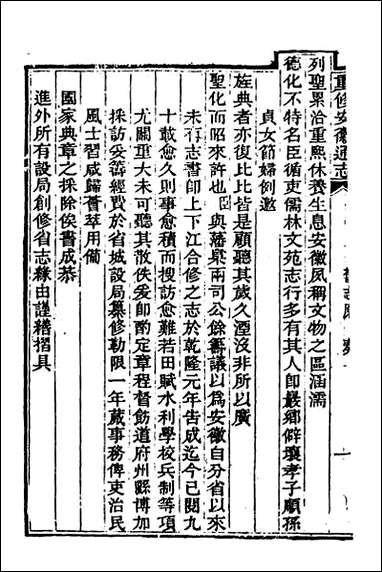 重修安徽通志
列聖累洽重熙休養生息安徽夙稱文物之區涵濡
德化不特名臣循吏儒林文苑志行多有其人卽嚴鄉僻壤孝子順孫
貞女節婦例邀
旌典者亦復比比皆是顧聽其歲久湮沒非所以廣
聖化而昭來許也臣與藩臬兩司公餘籌議以爲安徽自分省以來
未有志書卽上下江合修之志於乾隆元年告成迄今已閱九
十載愈久則事愈積而搜訪愈難若田賦水利學校兵制等項
尤關重大未可聽其散佚爰卽酌定章程督飭道府州縣博加
採訪妥籌經費於省城設局纂修勒限一年蕆事務俾吏治民
風士習咸歸薈萃用備
國家典章之採除俟書成恭
進外所有設局創修省志緣由謹繕摺具